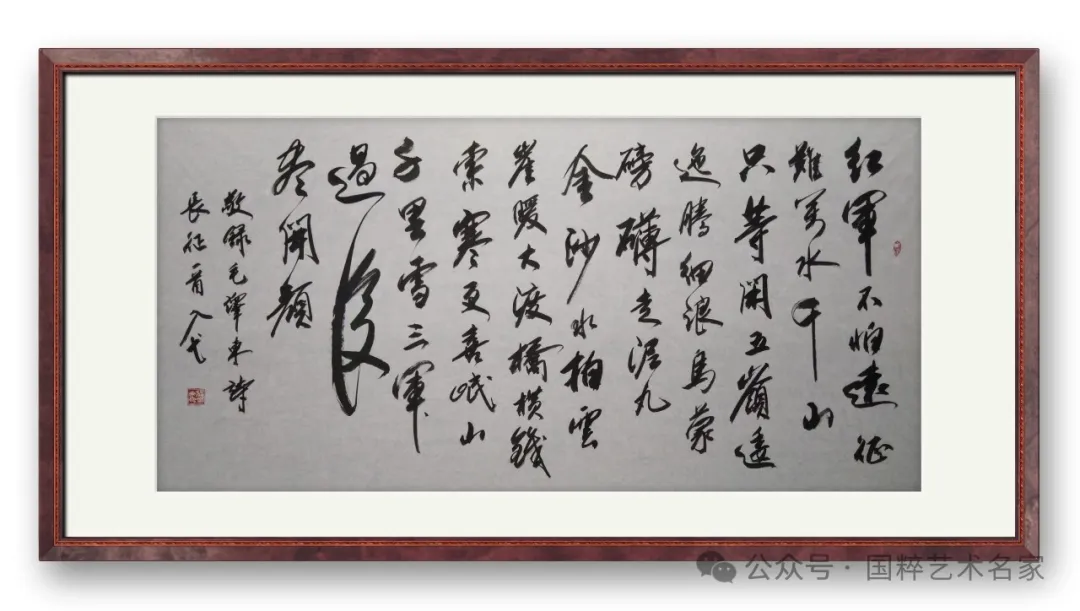 红軍不怕遠征
難萬水千山
只等閑五嶺逶
迤騰细浪烏蒙
磅礴走泥丸
金沙水拍雲
崖暖大渡橋横鐵
索寒更喜岷山
千里雪三軍
過後
盡開顔
敬録毛澤東詩
長征一首 入弋
公众号·国粹艺术名家